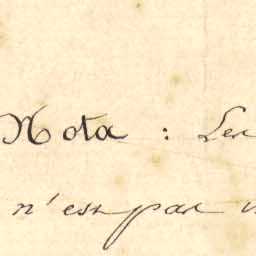 Nota : Les
n'est pas